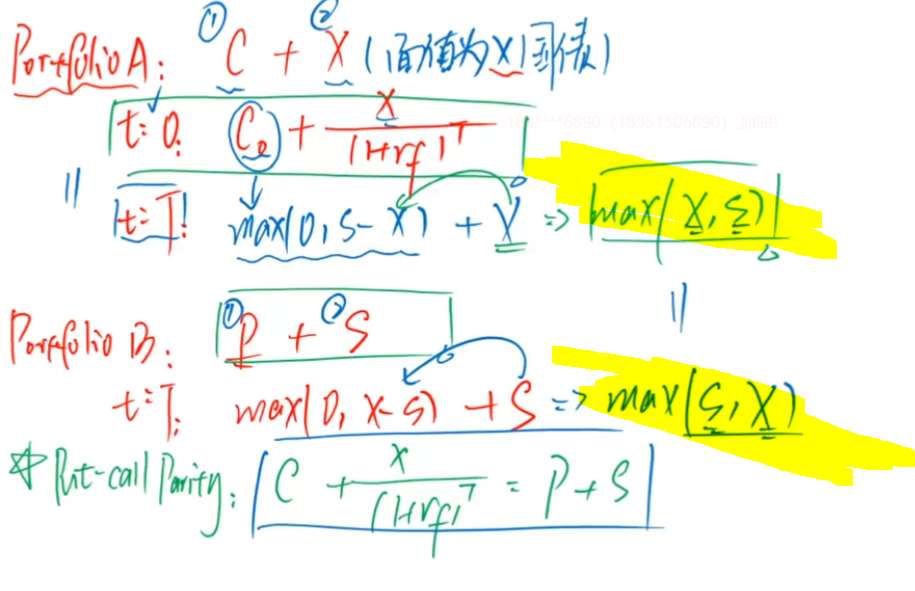 ① ②
Portfolio A: C + X (面值为X国债)
t=0: C₀ + X/(1+rf)^T
t=T: max(0, S-X) + X => max(X, S)
Portfolio B: ①P + ②S
t=T: max(0, X-S) + S => max(S, X)
☆ Put-call Parity: C + X/(1+rf)^T = P+S